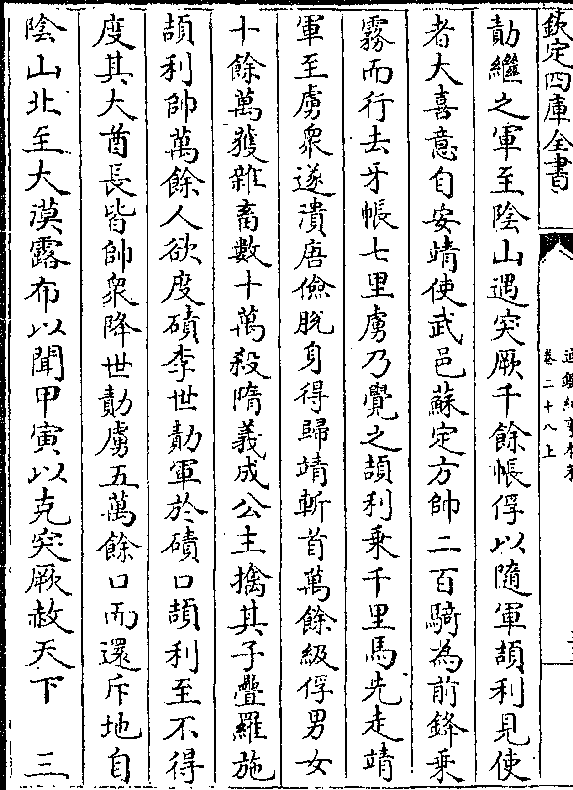 欽定四庫全書
通鑑紀事本末
卷二十八上
勣繼之軍至陰山遇突厥千餘帳俘以隨軍頡利見使
者大喜意自安靖使武邑蘇定方帥二百騎為前鋒乗
霧而行去牙帳七里虜乃覺之頡利乗千里馬先走靖
軍至虜衆遂潰唐儉脫身得歸靖斬首萬餘級俘男女
十餘萬獲雜畜數十萬殺隋義成公主擒其子疊羅施
頡利帥萬餘人欲度磧李世勣軍於磧口頡利至不得
度其大酋長皆帥衆降世勣虜五萬餘口而還斥地自
陰山北至大漠露布以聞甲寅以克突厥赦天下　三